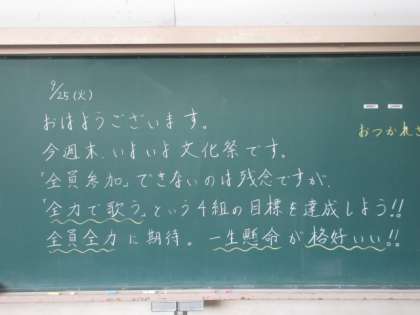 9/25(火)
おはようございます。
今週末、いよいよ文化祭です。
「全員参加」できないのは残念ですが、
「全力で歌う」という4組の目標を達成しよう!!
全員全力に期待。一生懸命が格好いい!!
おつかれさ